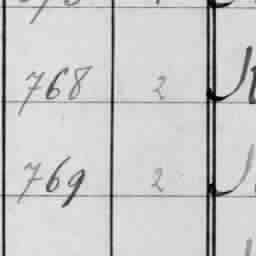 768 2
769 2